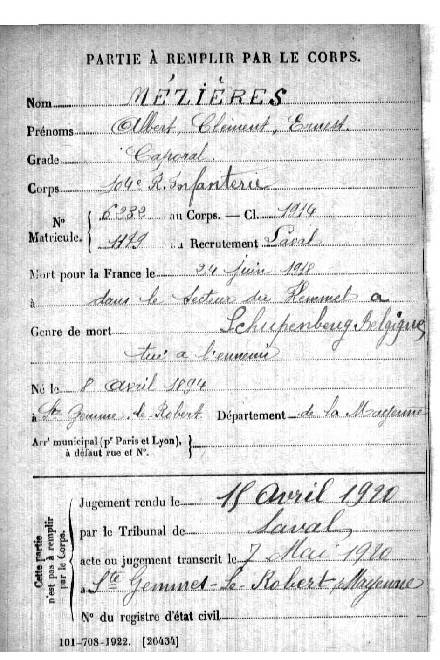 PARTIE À REMPLIR PAR LE CORPS.
Nom MÉZIÈRES
Prénoms Albert, Clément, Ernest.
Grade Caporal.
Corps 104e R. Infanterie
N° Matricule. 6232 au Corps. — Cl. 1914
1179 au Recrutement Laval
Mort pour la France le 24 juin 1918
à dans le secteur du Kemmel a
Schupenbeug Belgique
Genre de mort
tué a l'ennemi
Né le 8 avril 1894
à Ste Gemme le Robert Département de la Mayenne
Arrt municipal (pr Paris et Lyon),
à défaut rue et N°.
Cette partie n'est pas à remplir par le Corps.
Jugement rendu le 15 Avril 1920
par le Tribunal de Laval
acte ou jugement transcrit le 7 Mai 1920
à Ste Gemmes-le-Robert, Mayenne
N° du registre d'état civil
101-708-1922. [26434]